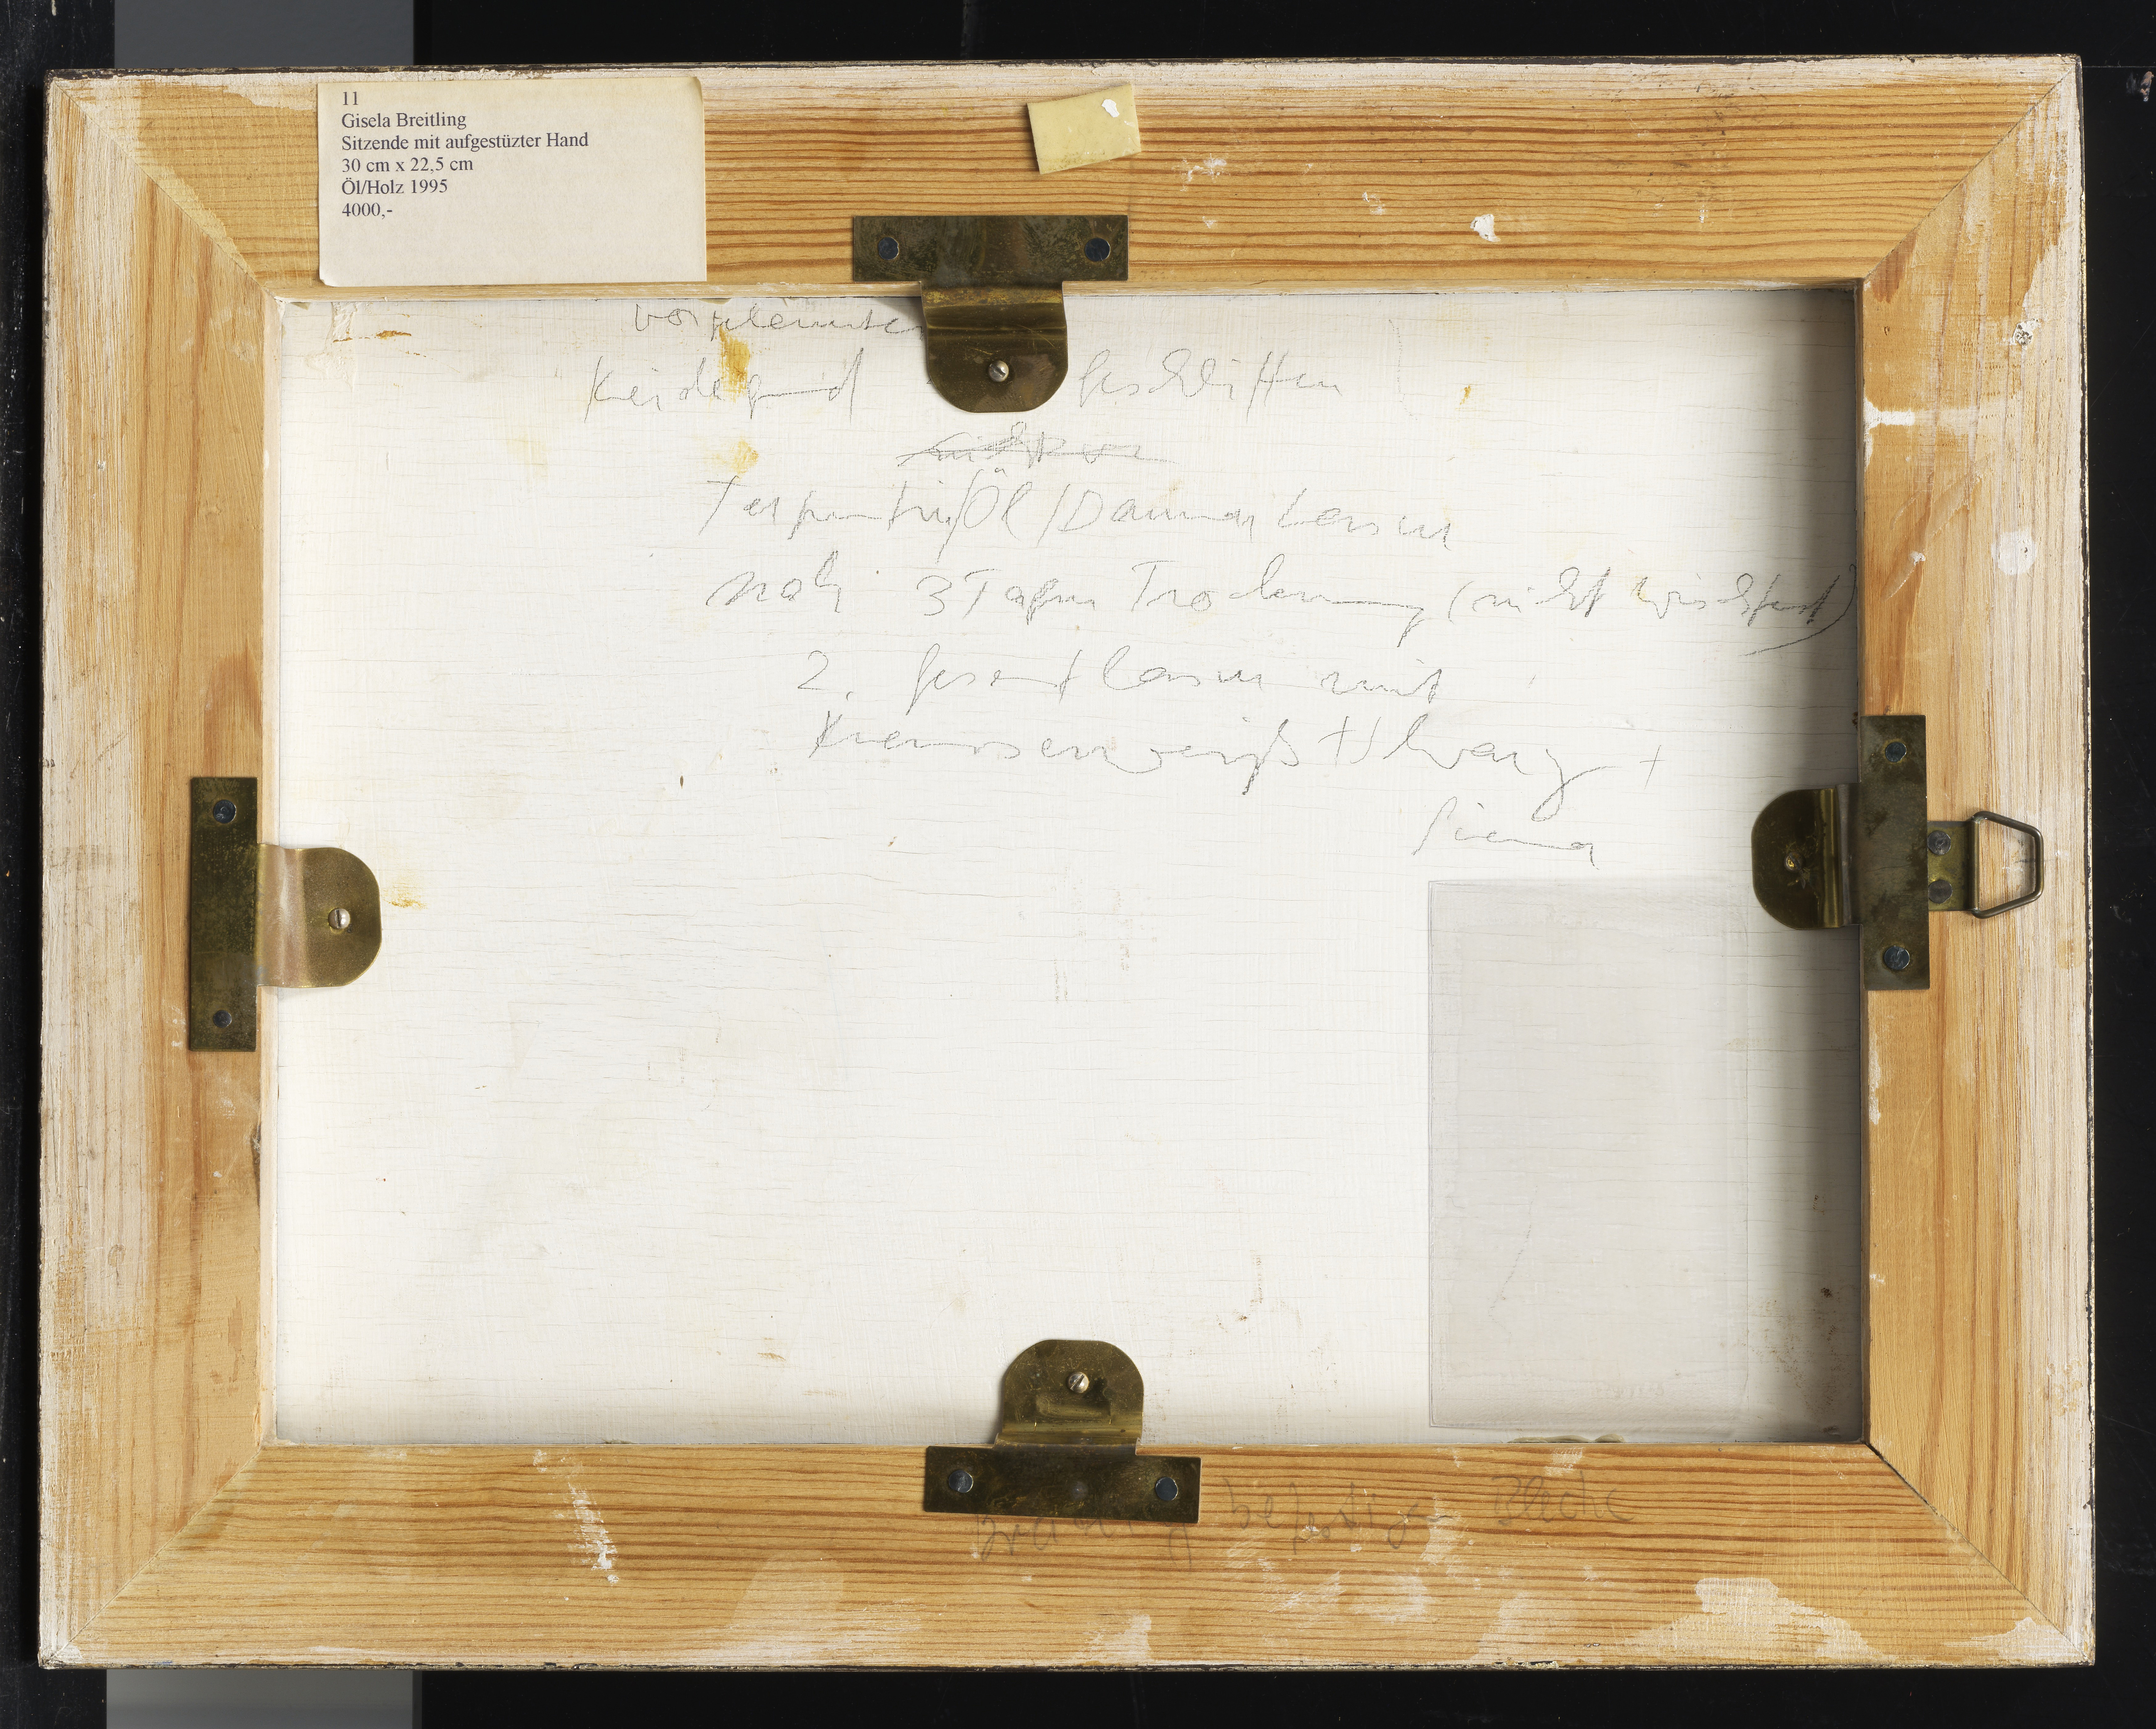 11
Gisela Breitling
Sitzende mit aufgestüzter Hand
30 cm x 22,5 cm
Öl/Holz 1995
4000,-
vorgeleimter
Kreidegrund geschliffen
Terpentin/Öl/Dammar Lasur
nach 3 Tagen Trocknung (nicht wischfest)
2. Gesamtlasur mit
Kremserweiß + Schwarz +
Siena
Breitling befestigen Bleche